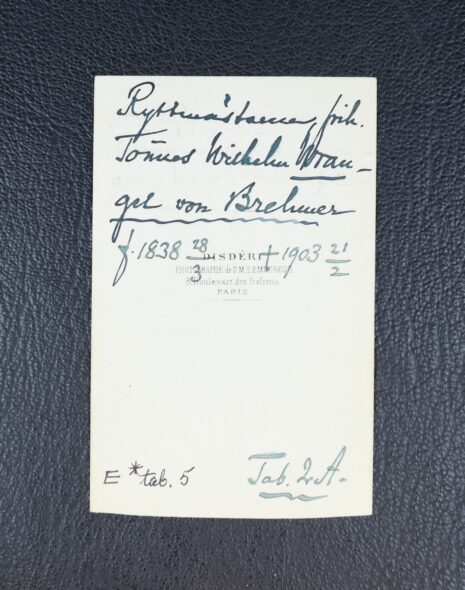 Ryttmästaren, frih.
Tönnes Wilhelm Wran-
gel von Brehmer
f. 1838 28/3 † 1903 21/2
DISDÉRI
PHOTOGRAPHE de S.M. L'EMPEREUR
8 Boulevart des Italiens
PARIS
E *tab. 5
Tab. 2 A.